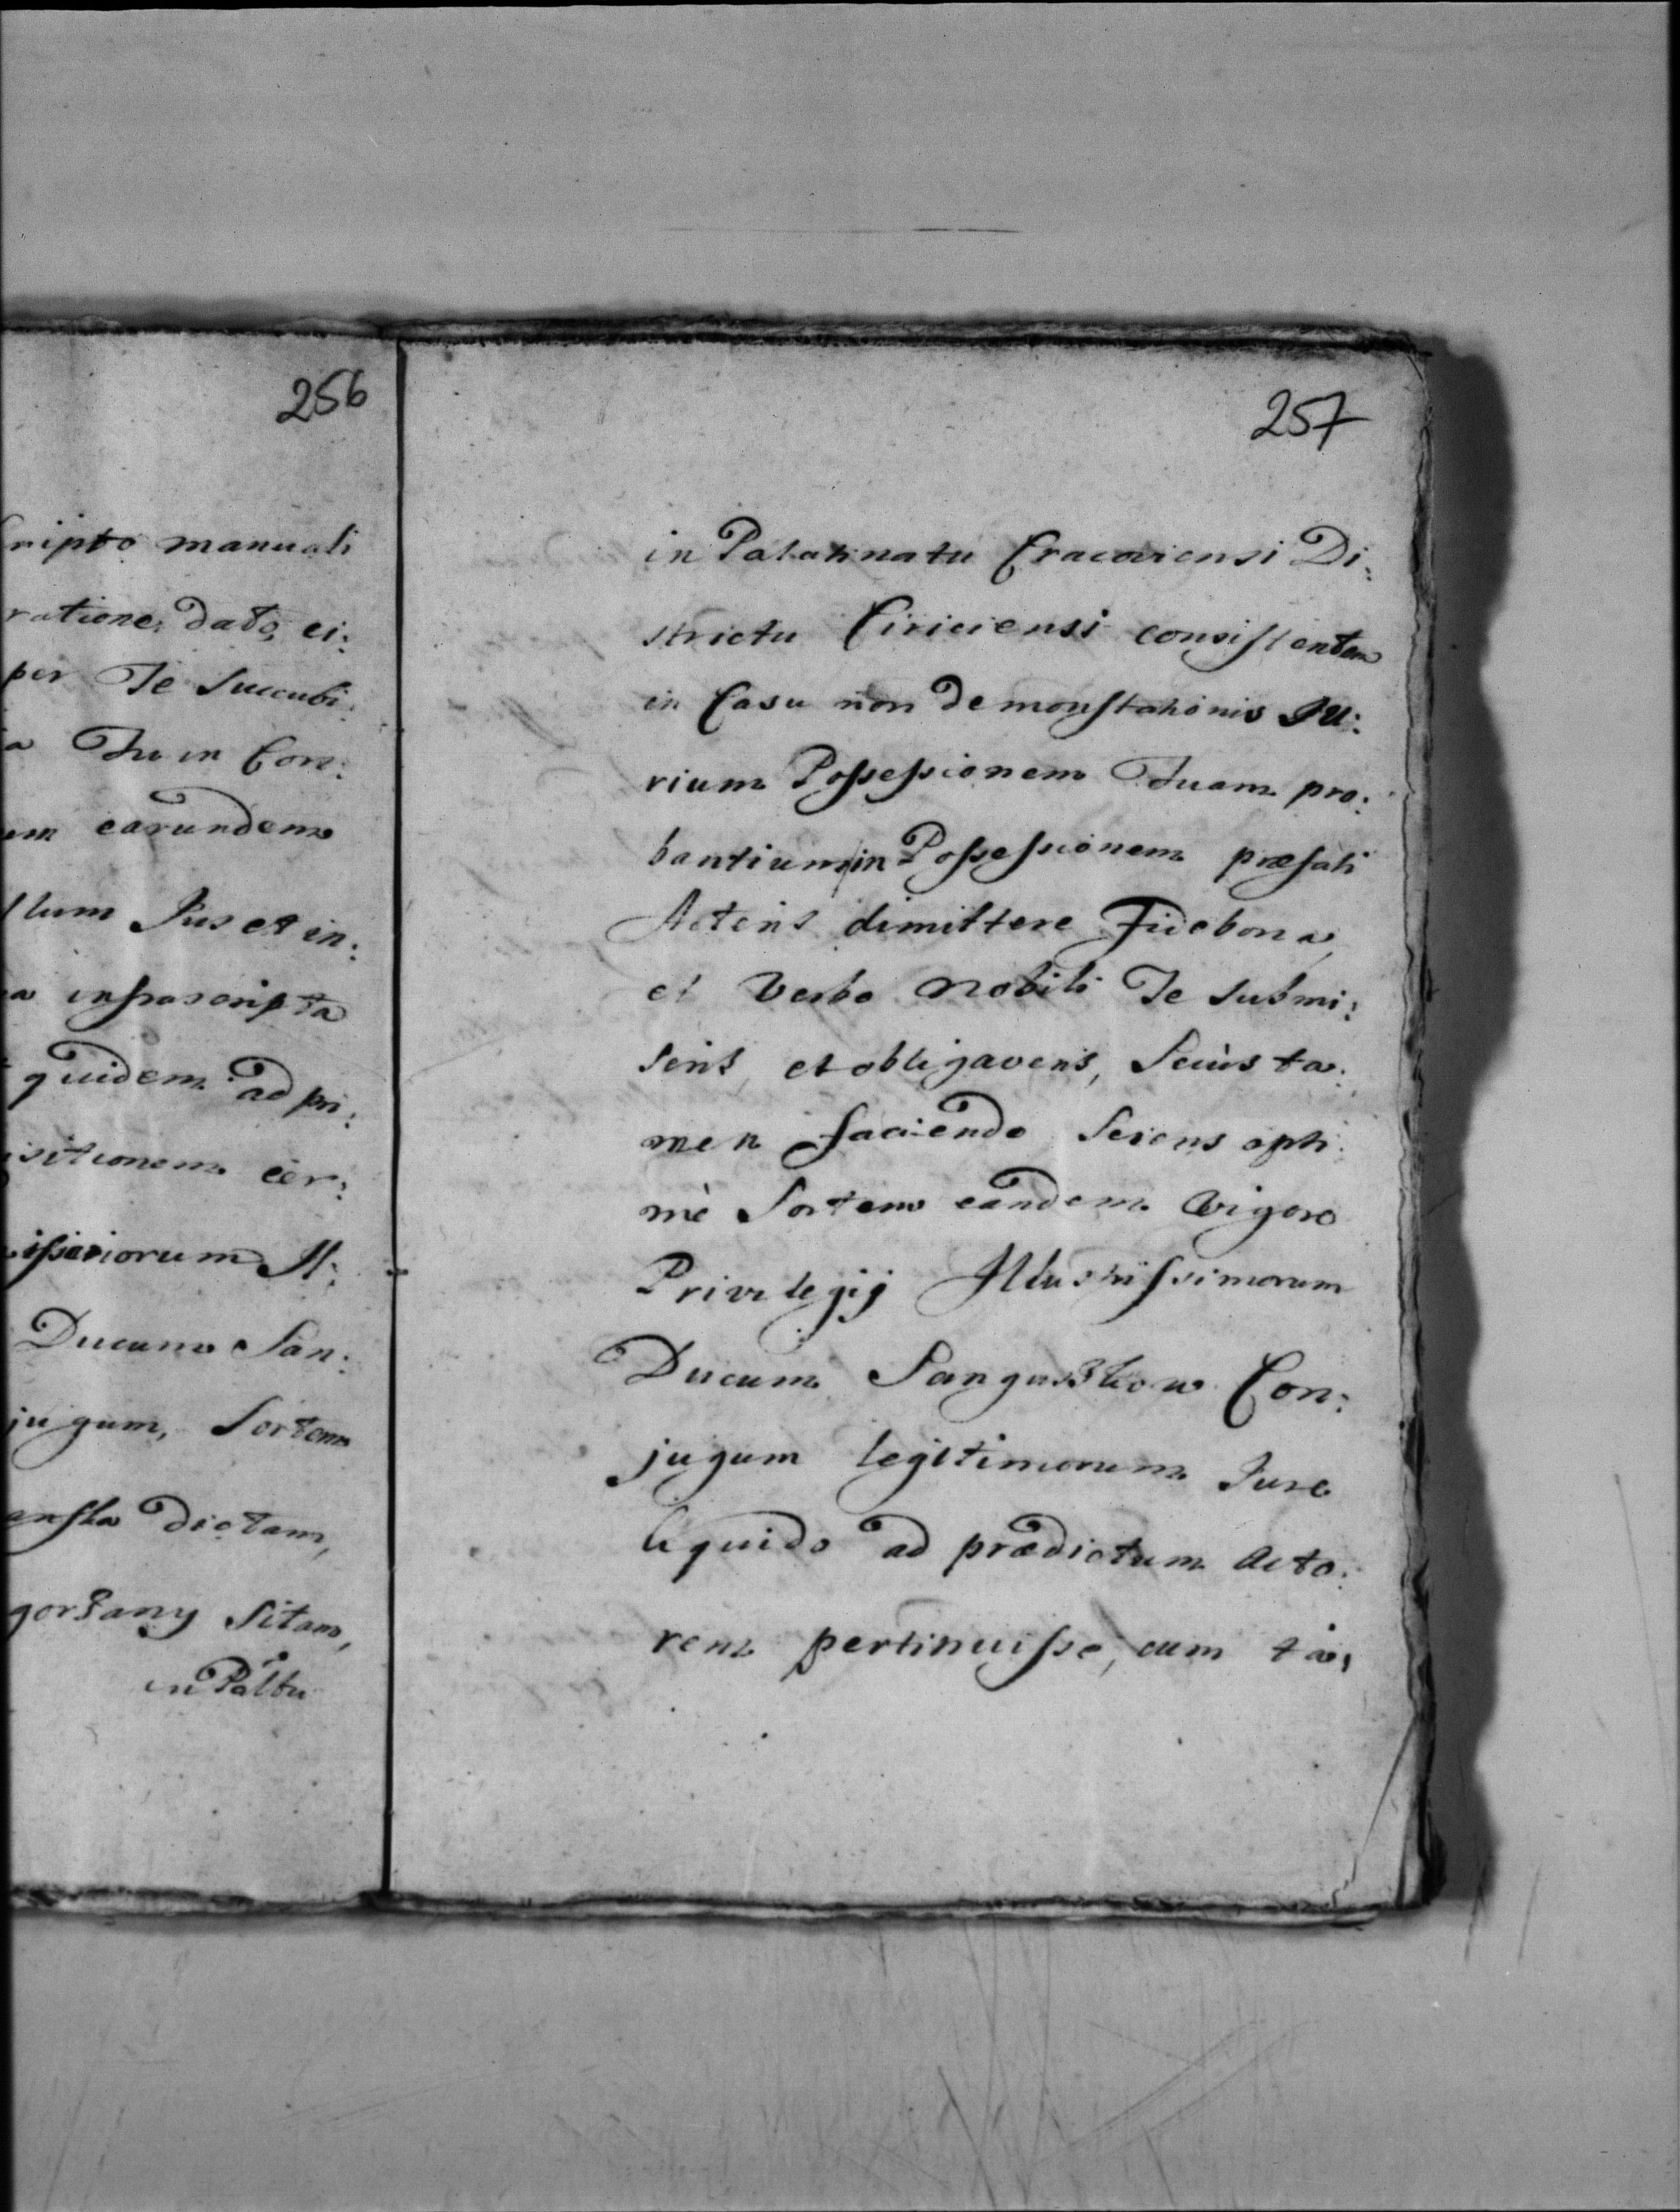 256
ripto manuali
ratione dato, ei:
per Te Succubi:
a Tu in Con:
em earundem
llum Jus et in:
a infrascripta
quidem ad pri:
sitionem cer:
issariorum Il:
Ducum San:
jugum, Sortem
dictam,
gorzany Sitam,
in Paltu
257
in Palatinatu Cracoviensi Di:
strictu Ciriciensi consistentem
in Casu non demonstationis Ju:
rium Possessionem Tuam pro:
bantium in Possessionem præfati
Actoris dimittere Fide bona
et Verbo Nobili Te Submi:
seris, et obligaveris, Secùs ta:
men faciendo Sciens opti:
mè Sortem eandem Vigore
Privilegij Illustrissimorum
Ducum Sanguszkow Con:
jugum legitimorum Jure
liquido ad prædictum Acto:
rem pertinuisse, cum ta: